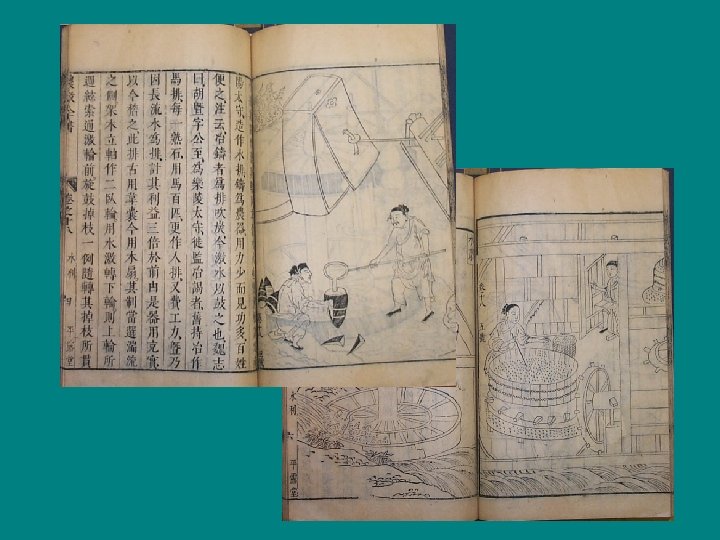 陽太守造作水排鑄爲農器用力少而見功多百姓
便之注云冶鑄者爲排吹炭今激水以鼓之也魏志
曰胡暨字公至爲樂陵太守徙監冶謁者舊持冶作
馬排每一熟石用馬百匹更作人排又費工力暨乃
因長流水爲排計其利益三倍於前由是器用充實
以今稽之此排古用韋囊今用木扇其制當選湍流
之側架木立軸作二臥輪用水激轉下輪則上輪所
週絃索通激輪前旋鼓掉枝一例隨轉其掉枝所貫
農政全書 卷之十八 水利 平露堂
卷十八
水利 六 平露堂